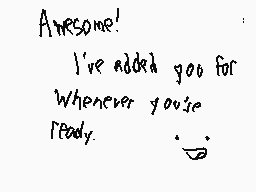 Awesome!
I've added you for
Whenever you're
ready.